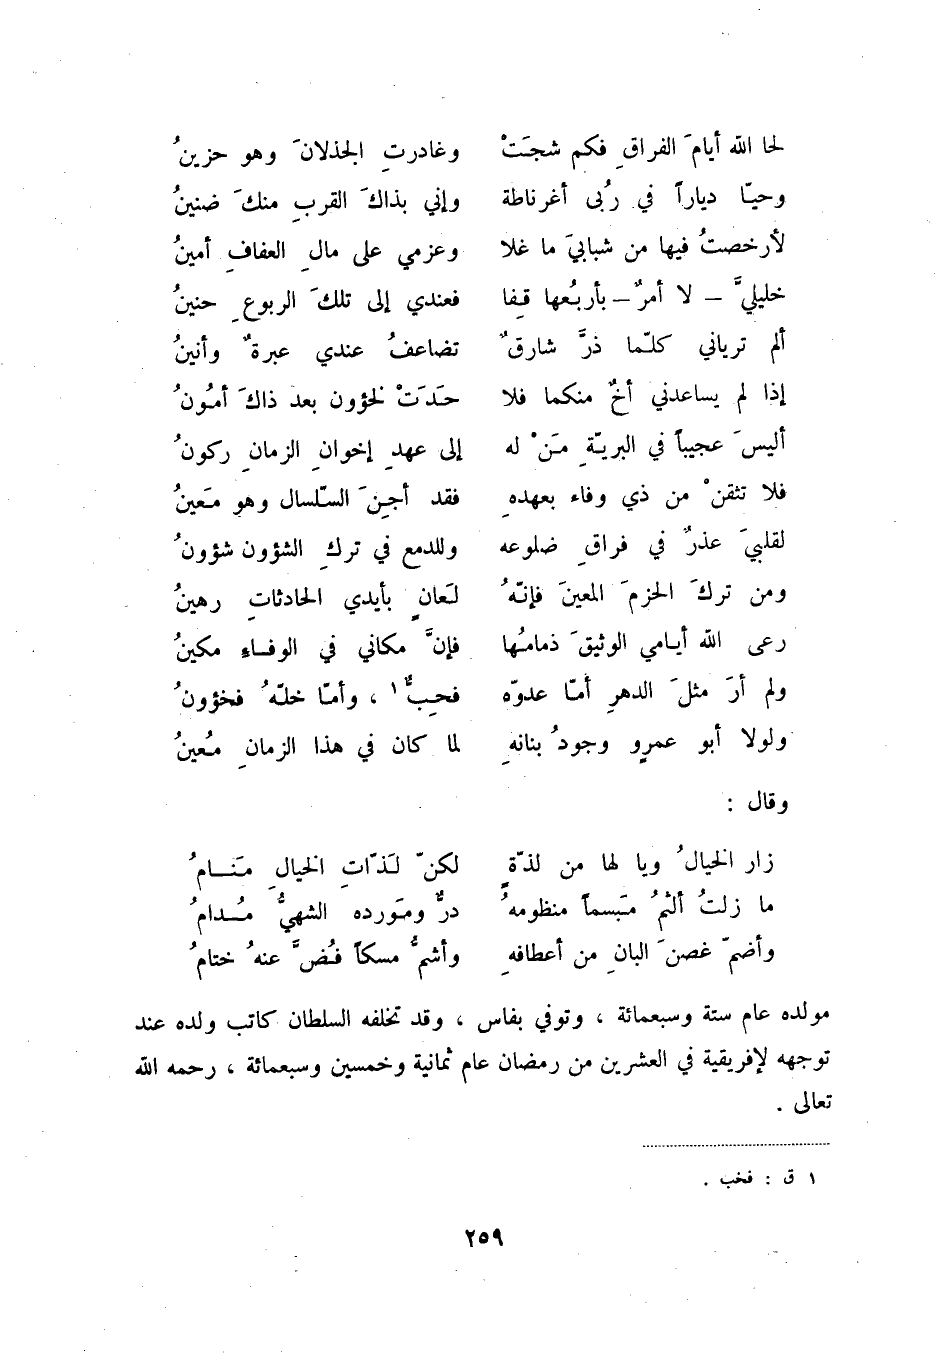 لحا الله أيامَ الفراقِ فكم شجَتْ وغادرتِ الجذلانَ وهو حزينُ
وحيّا دياراً في رُبى أغرناطة وإني بذاكَ القربِ منكَ ضنينُ
لأرخصتُ فيها من شبابيَ ما غلا وعزمي على مالِ العفافِ أمينُ
خليليَّ – لا أمرٌ – بأربُعها قِفا فعندي إلى تلكَ الربوعِ حنينُ
ألم ترياني كلّما ذرَّ شارقٌ تضاعفُ عندي عبرةٌ وأنينُ
إذا لم يساعدني أخٌ منكما فلا حَدَتْ لخؤون بعد ذاكَ أمُونُ
أليسَ عجيباً في البريّةِ مَنْ له إلى عهدِ إخوانِ الزمانِ ركونُ
فلا تثقنْ من ذي وفاء بعهدهِ فقد أجِنَ السّلسال وهو مَعينُ
لقلبيَ عذرٌ في فراقِ ضلوعه وللدمع في تركِ الشؤون شؤونُ
ومن تركَ الحزمَ المعينَ فإنّهُ لَعانٍ بأيدي الحادثاتِ رهينُ
رعى الله أيامي الوثيقَ ذمامُها فإنَّ مكاني في الوفاءِ مكينُ
ولم أرَ مثلَ الدهرِ أمّا عدوّه فحِبٌّ١ ، وأمّا خلّهُ فخؤونُ
ولولا أبو عمرٍو وجودُ بنانهِ لما كان في هذا الزمانِ مُعينُ
وقال :
زار الخيالُ ويا لها من لذةٍ لكنّ لَذّاتِ الخيالِ مَنامُ
ما زلتُ ألثمُ مَبسماً منظومهُ درٌّ ومَورده الشهيُّ مُدامُ
وأضمّ غصنَ البانِ من أعطافهِ وأشمُّ مسكاً فُضَّ عنهُ ختامُ
مولده عام ستة وسبعمائة ، وتوفي بفاس ، وقد تخلفه السلطان كاتب ولده عند
توجهه لإفريقية في العشرين من رمضان عام ثمانية وخمسين وسبعمائة ، رحمه الله
تعالى .
١ ق : فخب .
٢٥٩